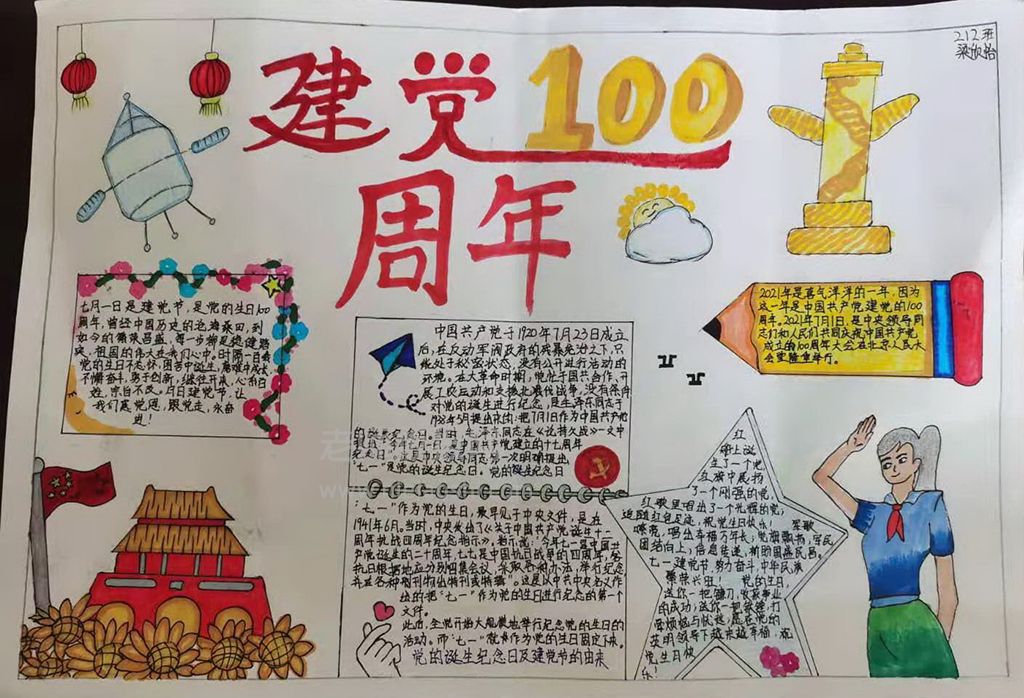 212班
梁欣怡
建党100
周年
七月一日是建党节,是党的生日100
周年,曾经中国历史的沧海桑田,到
如今的繁荣昌盛,每一步都是稳健踏
实,祖国的伟大在我们心中。时
党的生日不忘怀,图苦中诞生,
不懈奋斗,勇于创新,继往开来,心怀百
姓,宗旨不改。7月1日建党节,让
我们爱党迎,跟党走,永奋
进!
2021年是喜气洋洋的一年,因为
这一年是中国共产党建党的100
周年。2021年7月1日,是中央领导同
志们和人民们共同庆祝中国共产党
成立的100周年大会在北京人民大
会堂隆重举行。
中国共产党于1920年7月23日成立
后,在反动军阀政府的残暴统治之下,只
能处于秘密状态,没有公开进行活动的
环境。在大革命时期,党忙于国共合作、开
展工农运动和支援北伐战争,没有条件
对党的诞生进行纪念。是毛泽东同志于
1938年5月提出来的。把7月1日作为中国共产党
的诞生纪念日。当时,毛泽东同志在《论持久战》一文中
今年七月一日,是中国共产党建立的十七周年
纪念日"。这是中央领导同志第一次明确提出
"七一"是党的诞生纪念日。党的诞生纪念日
"七一"作为党的生日,最早见于中央文件,是在
1941年6月。当时,中央发出了《关于中国共产党诞生二十
周年抗战四周年纪念指示》。指示说:"今年七一是中国共
产党诞生的二十周年,七七是中国抗日战争的四周年,各
抗日根据地应分别召集会议,采取各种办法,举行纪念
并在各种报刊物出特刊或特辑"。这是以中共中央名义作
出的把"七一"作为党的生日进行纪念的第一个
文件。
此后,全党开始大规模地举行纪念党的生日的
活动。而"七一"就作为党的生日固定下来。
党的诞生纪念日及建党节的由来
红
船上诞
生了一个党,
红旗中展扬
了一个刚强的党,
红歌里唱出了一个光辉的党,
追随红色足迹,祝党生日快乐! 军歌
嘹亮,唱出幸福万年长;党旗飘扬,军民
团结向上;信息传递,祈盼国泰民昌。
七一建党节,努力奋斗,中华民族
繁荣兴旺! 党的生日,
送你一把镰刀,收获事业
的成功;送你一把铁锤,打
碎烦恼与忧愁,愿在党的
英明领导下越来越幸福,祝
党生日快
乐!